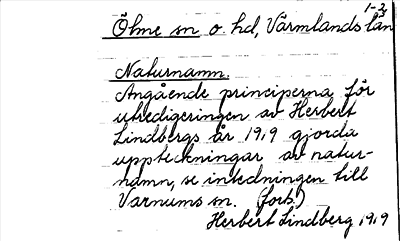 1-2
Ölme sn o. hd, Värmlands län
Naturnamn.
Angående principerna för
utredigeringen av Herbert
Lindbergs år 1919 gjorda
uppteckningar av natur-
namn, se inledningen till
Varnums sn. (forts.)
Herbert Lindberg 1919